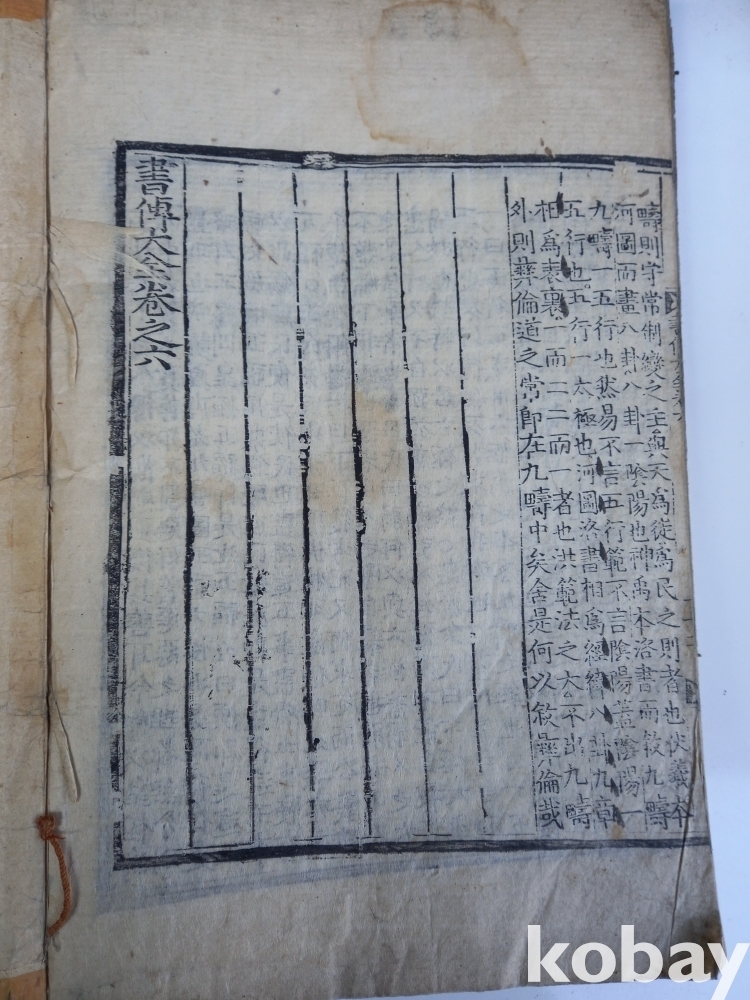 疇則守常制變之主與天為徒為民之則者也伏羲本
河圖而畫八卦八卦一陰陽也神禹本洛書而敘九疇
九疇一五行也然易不言五行範不言陰陽蓋陰陽一
五行也五行一太極也河圖洛書相爲經緯八卦九章
相爲表裏一而二二而一者也洪範法之大不出九疇
外則彝倫道之常即在九疇中矣舍是何以敘彝倫哉
書傳大全卷之六
kobay